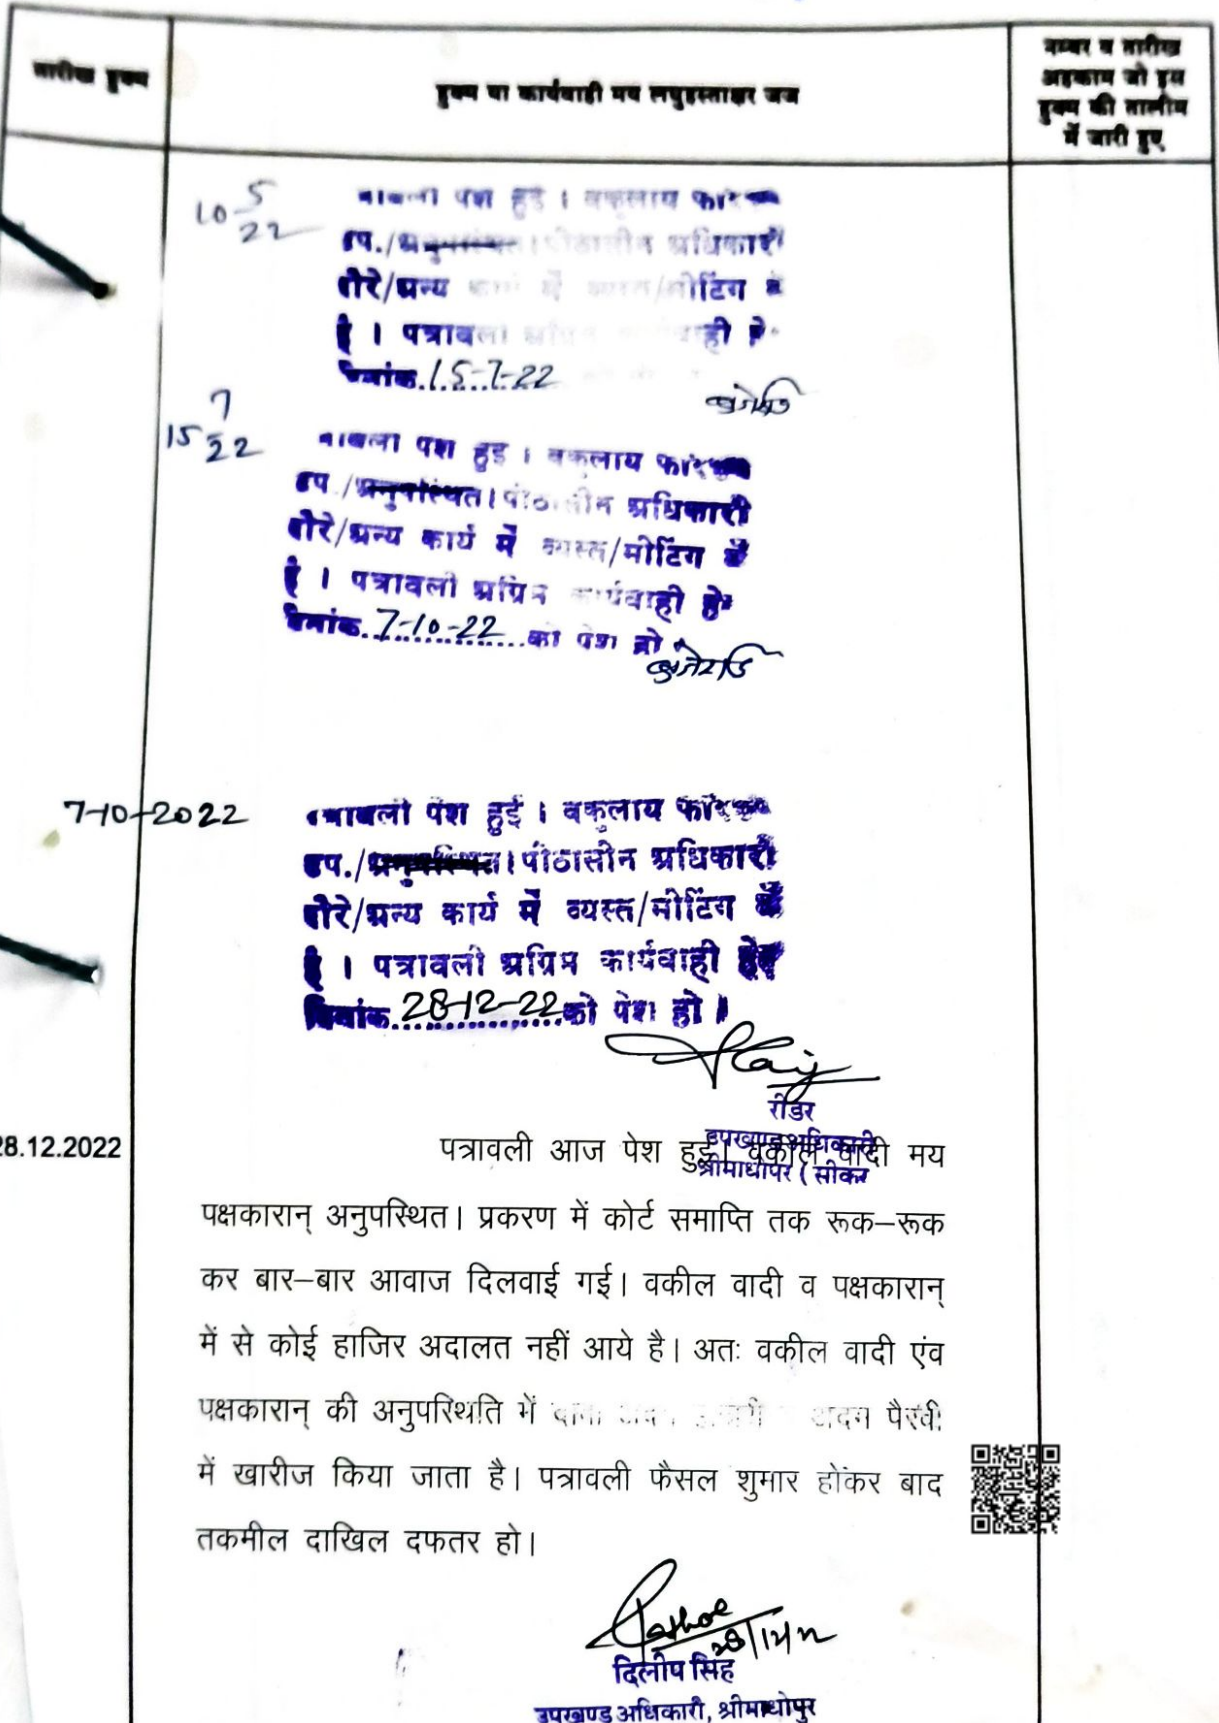 तारीख हुक्म
हुक्म या कार्यवाही मय लघुहस्ताक्षर जज
नम्बर व तारीख
अहकाम जो इस
हुक्म की तालीम
में जारी हुए
10 5/22
पेश हुई । वकुलाय
उप./अनुपस्थित। पीठासीन अधिकारी
दौरे/अन्य कार्य में व्यस्त/मीटिंग में
है । पत्रावली अग्रिम कार्यवाही
दिनांक 15-7-22
15 7/22
पेश हुई । वकुलाय
उप./अनुपस्थित। पीठासीन अधिकारी
दौरे/अन्य कार्य में व्यस्त/मीटिंग में
है । पत्रावली अग्रिम कार्यवाही हेतु
दिनांक 7-10-22 को पेश हो
7-10-2022
पत्रावली पेश हुई । वकुलाय
उप./अनुपस्थित। पीठासीन अधिकारी
दौरे/अन्य कार्य में व्यस्त/मीटिंग में
है । पत्रावली अग्रिम कार्यवाही हेतु
दिनांक 28-12-22 को पेश हो ।
रीडर
उपखण्ड अधिकारी
श्रीमाधोपुर (सीकर
28.12.2022
पत्रावली आज पेश हुई। वकील वादी मय
पक्षकारान् अनुपस्थित। प्रकरण में कोर्ट समाप्ति तक रूक–रूक
कर बार–बार आवाज दिलवाई गई। वकील वादी व पक्षकारान्
में से कोई हाजिर अदालत नहीं आये है। अतः वकील वादी एंव
पक्षकारान् की अनुपस्थिति में अदम पैरवी
में खारीज किया जाता है। पत्रावली फैसल शुमार होकर बाद
तकमील दाखिल दफतर हो।
28/12/22
दिलीप सिंह
उपखण्ड अधिकारी, श्रीमाधोपुर